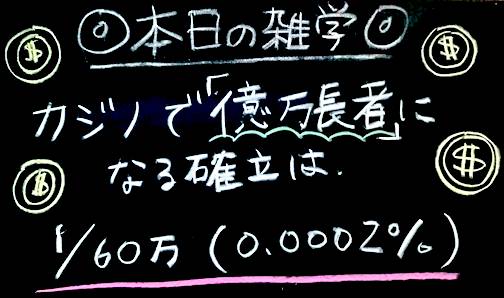 ◎本日の雑学◎
カジノで「億万長者」に
なる確立は、
1/60万(0.0002%)
$
$
$
$